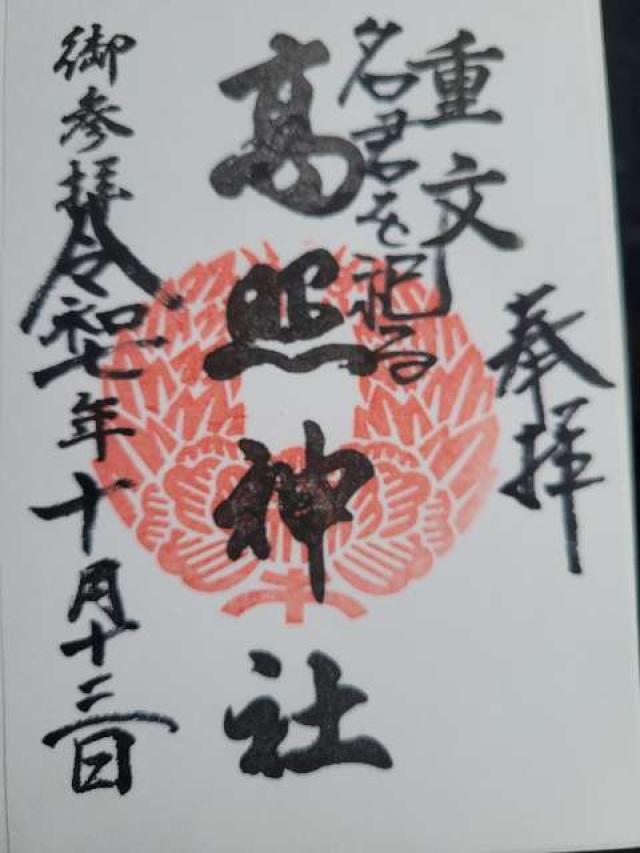 奉拝
重文
名君を祀る
高照神社
御参拝
令和七年十月十二日